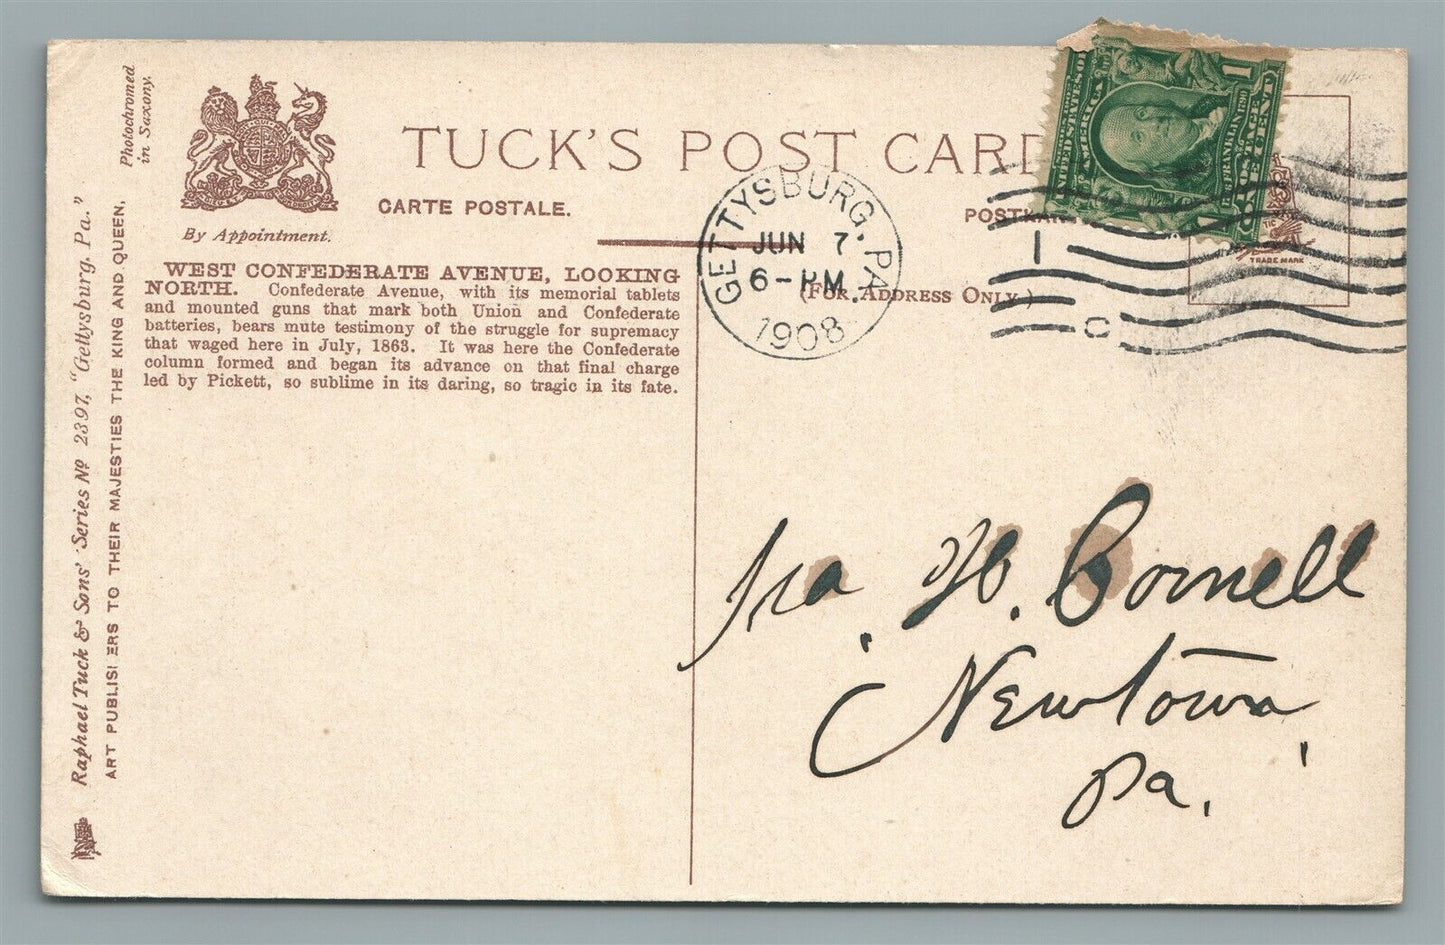 Photochromed
in Saxony.
TUCK'S POST CARD
CARTE POSTALE.
By Appointment.
WEST CONFEDERATE AVENUE, LOOKING
NORTH. Confederate Avenue, with its memorial tablets
and mounted guns that mark both Union and Confederate
batteries, bears mute testimony of the struggle for supremacy
that waged here in July, 1863. It was here the Confederate
column formed and began its advance on that final charge
led by Pickett, so sublime in its daring, so tragic in its fate.
Raphael Tuck & Sons' Series Nº 2397, "Gettysburg. Pa."
ART PUBLISHERS TO THEIR MAJESTIES THE KING AND QUEEN.
GETTYSBURG, PA.
JUN 7
6-PM
1908
(FOR ADDRESS ONLY.)
1
C
UNITED STATES OF
AMERICA
FRANKLIN
POSTAGE
1 CENT
TRADE MARK
Ira. H. Cornell
Newtown
Pa.